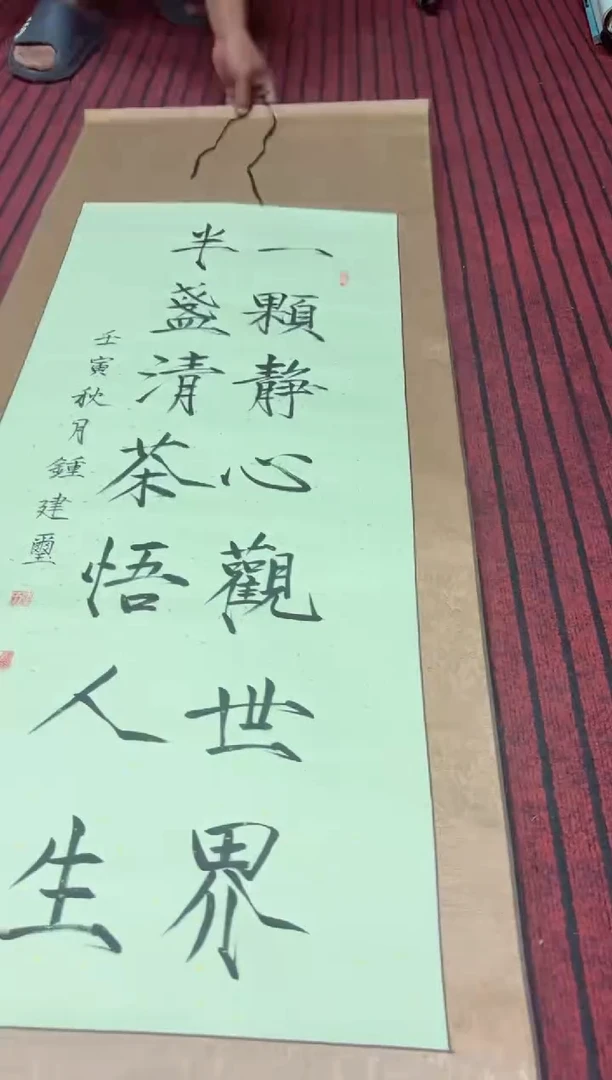 一顆靜心觀世界
半盞清茶悟人生
壬寅秋月鍾建璽